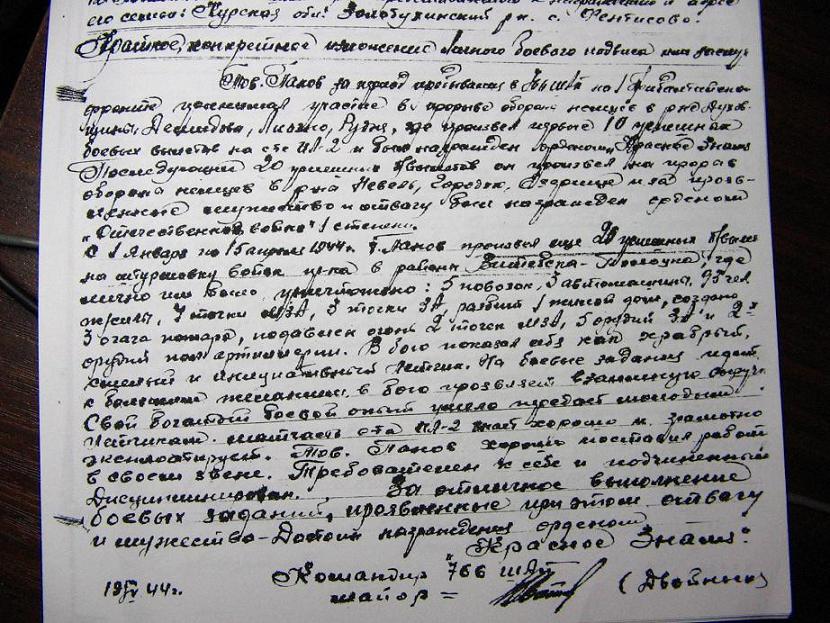 его семьи: Курская обл. Золотухинский р-н. с. Фентисово.
Краткое, конкретное изложение личного боевого подвига или заслуг
Тов. Панов за период пребывания в на 1 Прибалтийском
фронте участие в прорыве обороны немцев в р-не
Демидова, Лиозно, Рудня, где произвел первые 10 успешных
боевых вылетов на с-те ИЛ-2 и был награжден орденом "Красное Знамя"
Последующий 20 успешных б/вылетов он произвел на прорыв
обороны немцев в р-на Невель, Городок, и за прояв-
мужество и отвагу был награжден орденом
"Отечественной войны" 1 степени.
С 1 января по 15 апреля 1944г. т. Панов произвел еще 20 успешных б/выле
на штурмовку войск пр-ка в районе Витебска - где
лично им было уничтожено: 5 повозок, 3 автомашины, чел.
7 точки МЗА, 3 точки ЗА, разбит 1 жилой дом, создано
3 очага пожара, подавлен огонь 2 точек МЗА, 5 орудий ЗА и 2-х
орудий пол. артиллерии. В бою показал себя как храбрый,
смелый и инициативный летчик. На боевые задания идет
с большим желанием, в бою проявляет взаимную выруч
Свой богатый боевой опыт умело передает молодым
летчикам. Матчасть с-та ИЛ-2 знает хорошо и грамотно
эксплоатирует. Тов. Панов хорошо поставил работ
в своем звене. Требователен к себе и подчиненным
Дисциплинирован. За отличное выполнение
боевых заданий, проявленные при этом отвагу
и мужество - Достоин награждения орденом
"Красное Знамя".
Командир 766 ШАП
майор = (Двойных)
19/IV 44г.